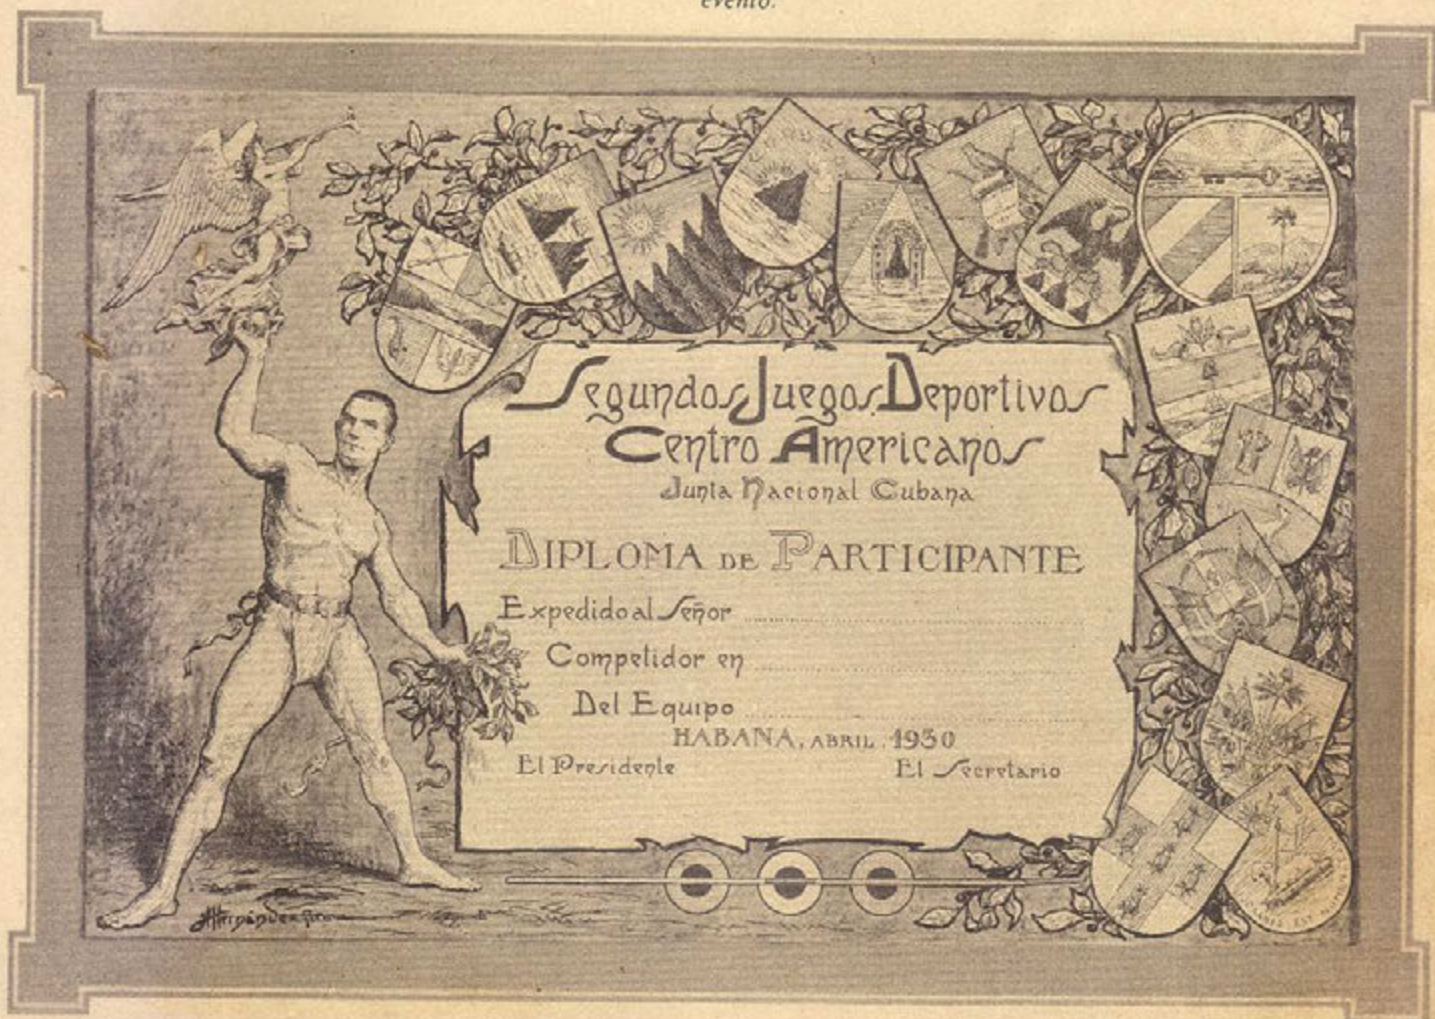 evento.
Segundos Juegos Deportivos
Centro Americanos
Junta Nacional Cubana
DIPLOMA DE PARTICIPANTE
Expedido al Señor
Competidor en
Del Equipo
HABANA, ABRIL. 1930
El Presidente
El Secretario